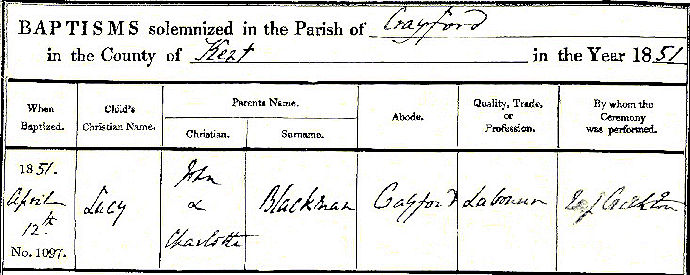 BAPTISMS solemnized in the Parish of Crayford
in the County of Kent in the Year 1851
When Baptized. Child's Christian Name. Parents Name. Abode. Quality, Trade, or Profession. By whom the Ceremony was performed.
Christian. Surname.
1851.
April
12th
No. 1097.
Lucy
John
&
Charlotte
Blackman
Crayford
Labourer